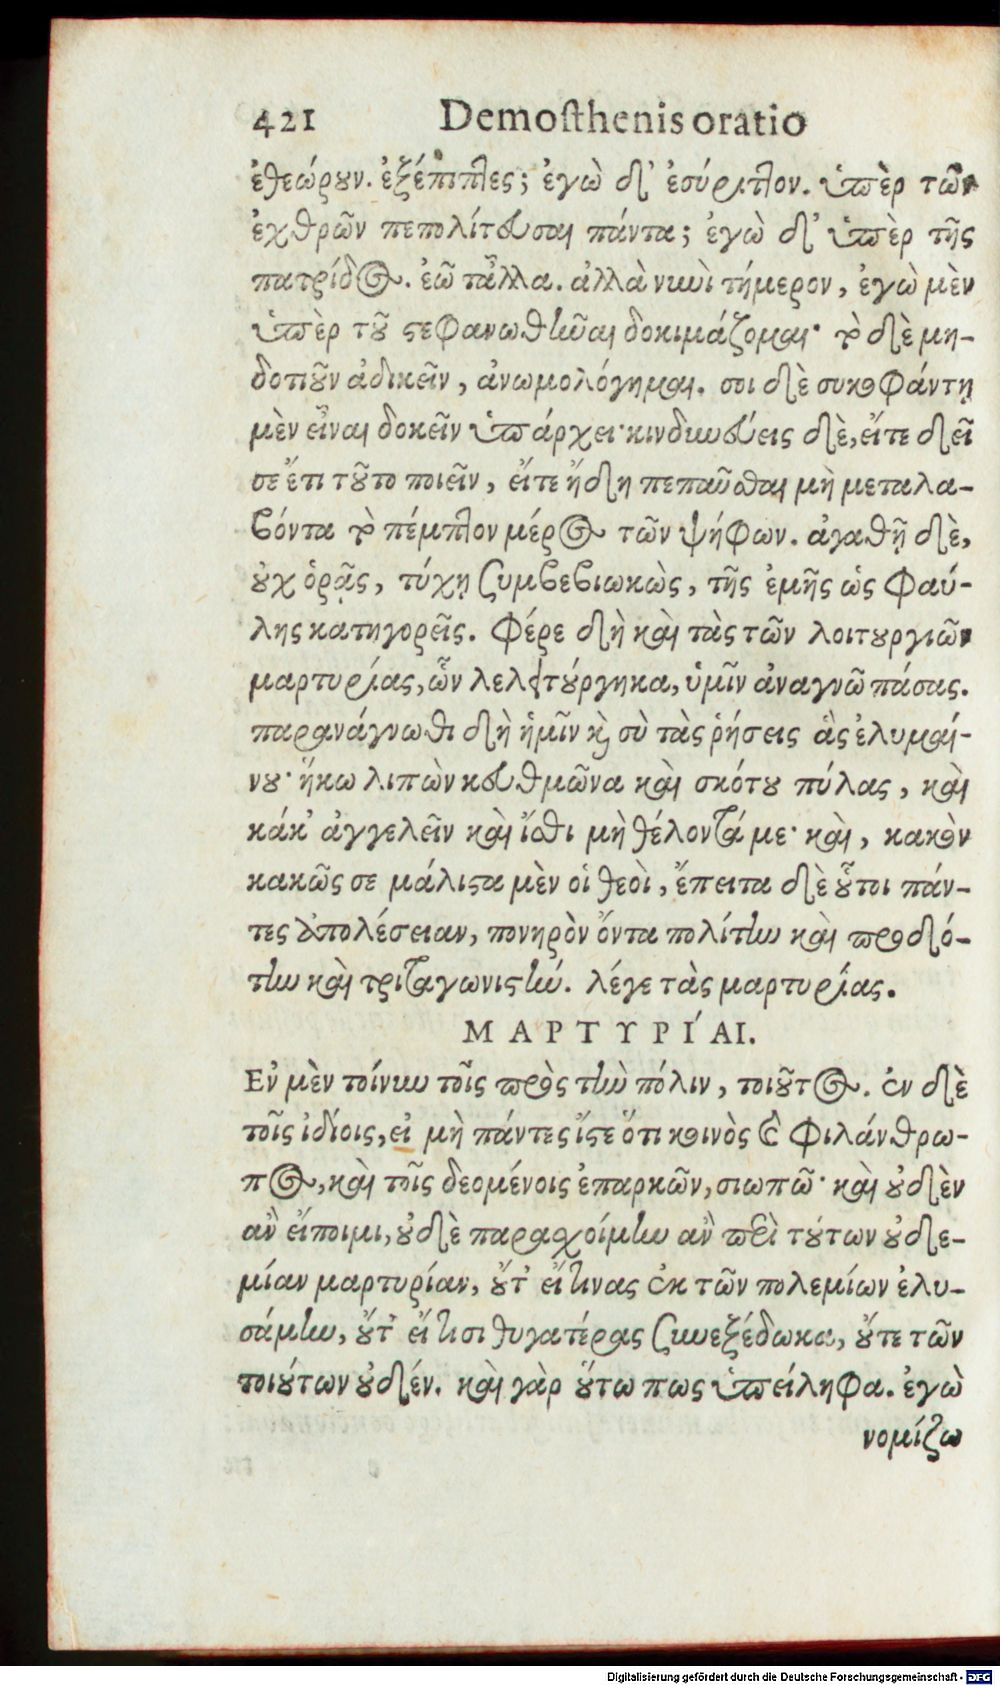 421 Demosthenis oratio
ἐθεώρουν. ἐξέπιπτες; ἐγὼ δ' ἐσύριττον. ὑπὲρ τῶν
ἐχθρῶν πεπολίτευσαι πάντα; ἐγὼ δ' ὑπὲρ τῆς
πατρίδος. ἐῶ τἆλλα. ἀλλὰ νυνὶ τήμερον, ἐγὼ μὲν
ὑπὲρ τοῦ στεφανωθῆναι δοκιμάζομαι· τὸ δὲ μη-
δοτιοῦν ἀδικεῖν, ἀνωμολόγημαι. σοι δὲ συκοφάντῃ
μὲν εἶναι δοκεῖν ὑπάρχει· κινδυνεύεις δὲ, εἴτε δεῖ
σε ἔτι τοῦτο ποιεῖν, εἴτε ἤδη πεπαῦσθαι μὴ μεταλα-
βόντα τὸ πέμπτον μέρος τῶν ψήφων. ἀγαθῇ δὲ,
οὐχ ὁρᾷς, τύχῃ συμβεβιωκὼς, τῆς ἐμῆς ὡς φαύ-
λης κατηγορεῖς. Φέρε δὴ καὶ τὰς τῶν λοιτουργιῶν
μαρτυρίας, ὧν λελειτούργηκα, ὑμῖν ἀναγνῶ πάσας.
παρανάγνωθι δὴ ἡμῖν καὶ σὺ τὰς ῥήσεις ἃς ἐλυμαί-
νου· ἥκω λιπὼν κευθμῶνα καὶ σκότου πύλας, καὶ
κάκ' ἀγγελεῖν καὶ ἴσθι μὴ θέλοντά με· καὶ, κακὸν
κακῶς σε μάλιστα μὲν οἱ θεοὶ, ἔπειτα δὲ οὗτοι πάν-
τες ἀπολέσειαν, πονηρὸν ὄντα πολίτην καὶ προδό-
την καὶ τριταγωνιστήν. λέγε τὰς μαρτυρίας.
ΜΑΡΤΥΡΙ´ΑΙ.
Εν᾿ μὲν τοίνυν τοῖς πρὸς τὴν πόλιν, τοιοῦτος. ἐν δὲ
τοῖς ἰδίοις, εἰ μὴ πάντες ἴστε ὅτι κοινὸς καὶ φιλάνθρω-
πος, καὶ τοῖς δεομένοις ἐπαρκῶν, σιωπῶ· καὶ οὐδὲν
ἂν εἴποιμι, οὐδὲ παρασχοίμην ἂν περὶ τούτων οὐδε-
μίαν μαρτυρίαν, οὔτ' εἴ τινας ἐκ τῶν πολεμίων ἐλυ-
σάμην, οὔτ' εἴ τισι θυγατέρας συνεξέδωκα, οὔτε τῶν
τοιούτων οὐδέν. καὶ γὰρ οὕτω πως ὑπείληφα. ἐγὼ
νομίζω
Digitalisierung gefördert durch die Deutsche Forschungsgemeinschaft - DFG